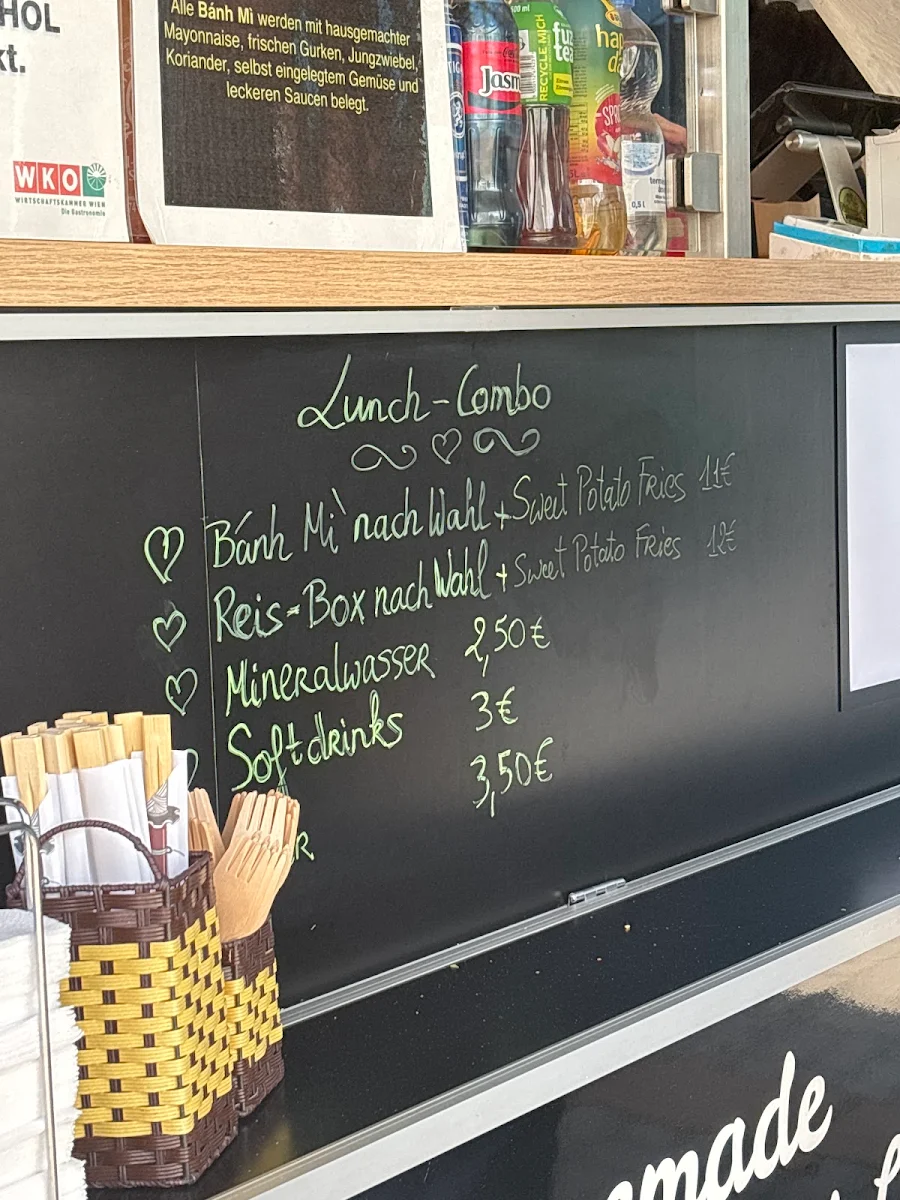 HOL
kt.
WKO
WIRTSCHAFTSKAMMER WIEN
Die Gastronomie
Alle Bánh Mì werden mit hausgemachter
Mayonnaise, frischen Gurken, Jungzwiebel,
Koriander, selbst eingelegtem Gemüse und
leckeren Saucen belegt.
Jasm
RECYCLE MICH
fuze
tea
hap
da
SPR
0,5l
Lunch-Combo
Bánh Mì nach Wahl + Sweet Potato Fries 11€
Reis-Box nach Wahl + Sweet Potato Fries 12€
Mineralwasser 2,50€
Softdrinks 3€
3,50€
R
omade